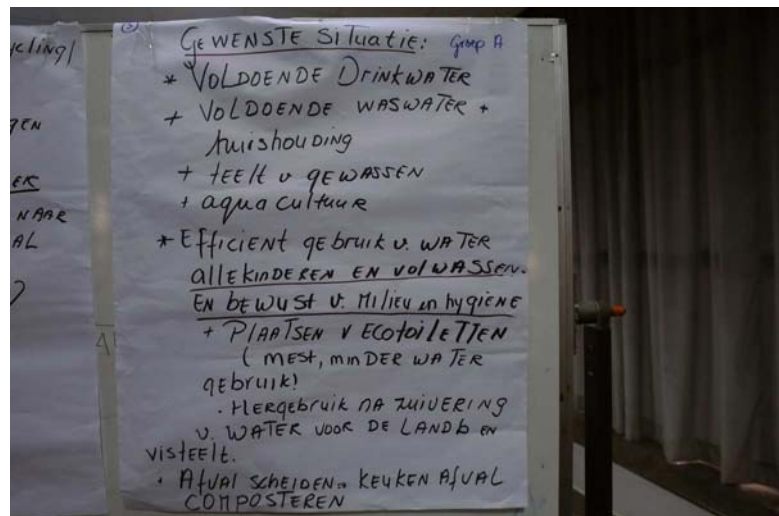 cling/
GEN
EK
NAAR
AL
GEWENSTE SITUATIE: Groep A
* VOLDOENDE DRINKWATER
+ VOLDOENDE WASWATER +
huishouding
+ teelt v GEWASSEN
+ aqua cultuur
* Efficient gebruik v. WATER
alle kinderen EN volwassen.
EN bewust v. Milieu en hygiëne
+ PLAATSEN V ECOtoiletten
( mest, minder water
gebruik!
. Hergebruik na zuivering
v. WATER voor DE LANDb EN
visteelt.
. Afval scheiden = KEUKEN AfVAL
COMPOSTEREN